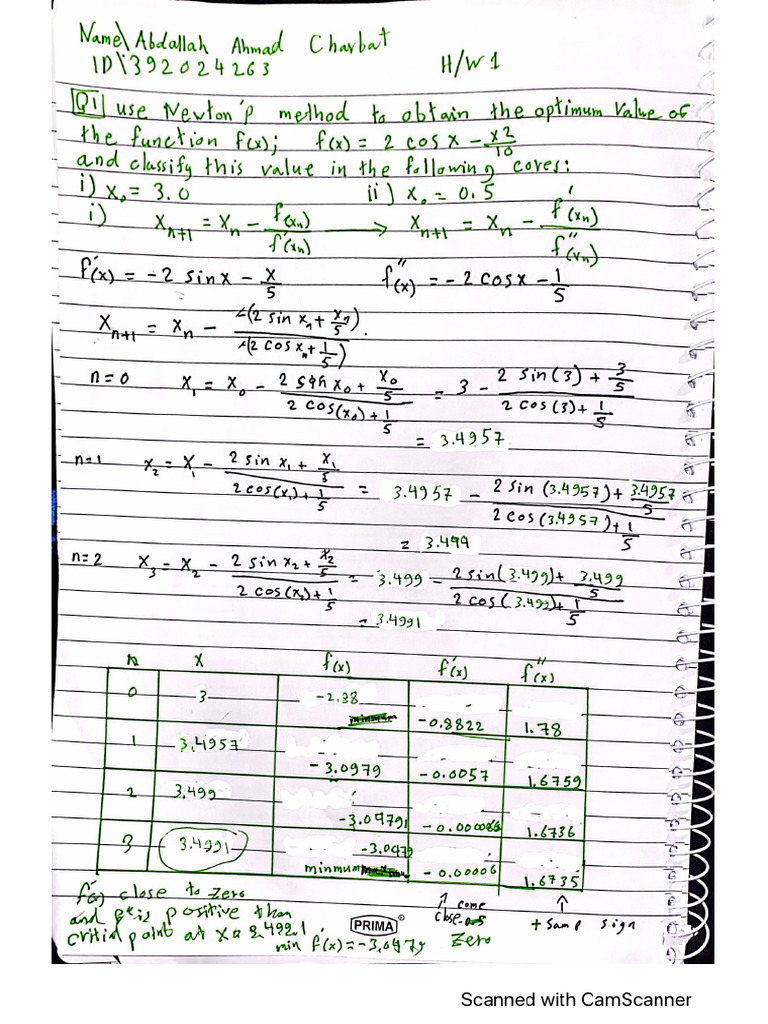 Name\ Abdallah Ahmad Charbat
ID\ 392024263 H/W1
Q1 use Newton'p method to obtain the optimum value of
the function f(x); f(x) = 2 cos x - x2/10
and classify this value in the following cores:
i) x₀ = 3.0 ii) x₀ = 0.5
i) xn+1 = xn - f(xn)/f'(xn) → xn+1 = xn - f'(xn)/f''(xn)
f'(x) = -2 sin x - x/5 f''(x) = -2 cos x - 1/5
xn+1 = xn - -(2 sin xn + xn/5)/-(2 cos xn + 1/5).
n=0 x₁ = x₀ - (2 sin x₀ + x₀/5)/(2 cos(x₀) + 1/5) = 3 - (2 sin(3) + 3/5)/(2 cos(3) + 1/5)
= 3.4957
n=1 x₂ = x₁ - (2 sin x₁ + x₁/5)/(2 cos(x₁) + 1/5) = 3.4957 - (2 sin (3.4957) + 3.4957/5)/(2 cos (3.4957) + 1/5)
= 3.499
n=2 x₃ = x₂ - (2 sin x₂ + x₂/5)/(2 cos(x₂) + 1/5) = 3.499 - (2 sin(3.499) + 3.499/5)/(2 cos(3.499) + 1/5)
= 3.4991
n x f(x) f'(x) f''(x)
0 3 -2.88 -0.8822 1.78
1 3.4957 -3.0979 -0.0057 1.6759
2 3.499 -3.09791 1.6736
3 3.4991 -3.0979 minmum -0.00006 1.6735
f'(x) close to zero
and positive than
critial point at x = 3.4991
min f(x) = -3.0979
come
close
zero
+ samp sign
PRIMA®
Scanned with CamScanner